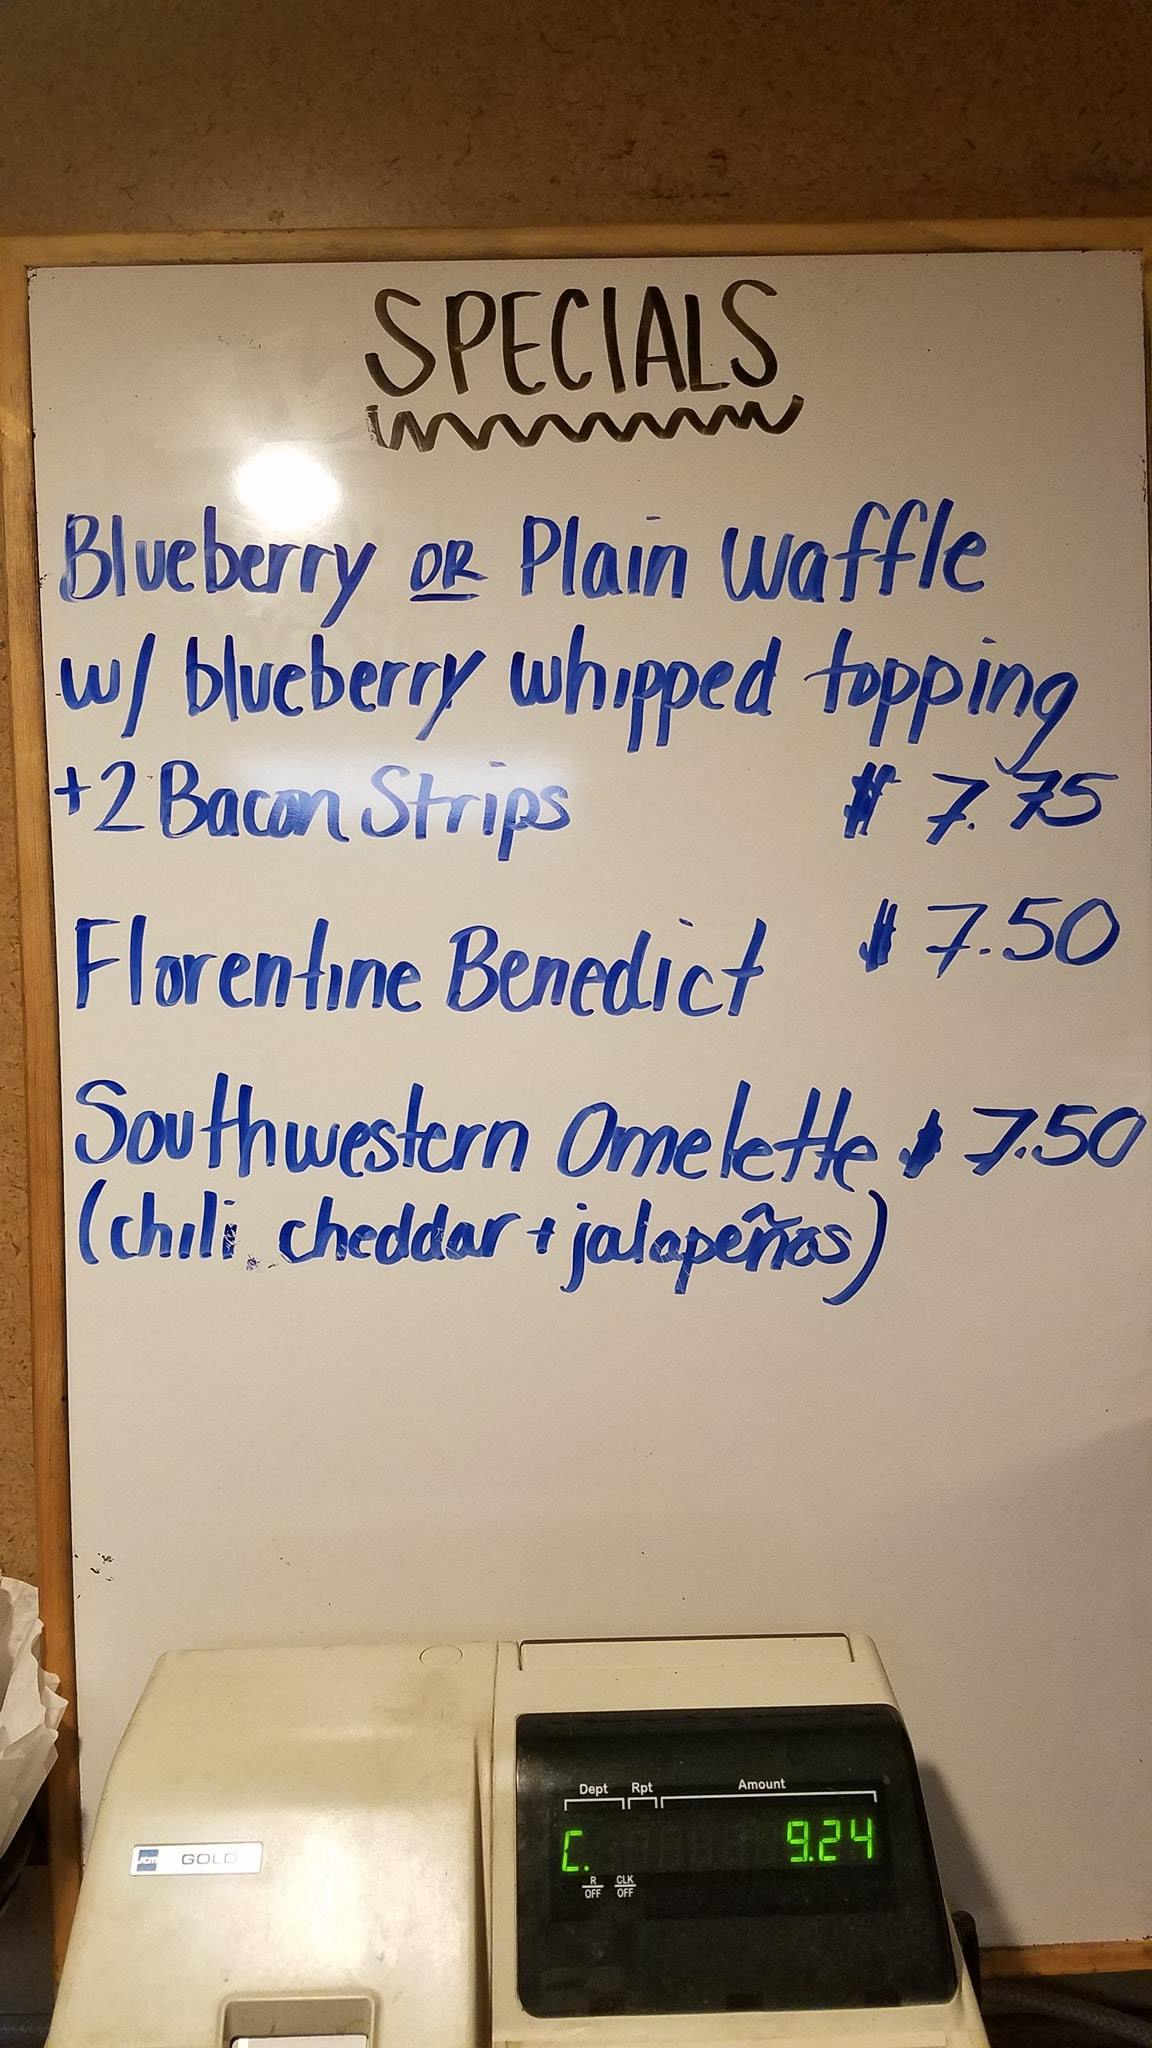 SPECIALS
Blueberry OR Plain Waffle
w/ blueberry whipped topping
+2 Bacon Strips $7.75
Florentine Benedict $7.50
Southwestern Omelette $7.50
(chili, cheddar + jalapeños)
Dept Rpt Amount
C. 9.24
R OFF CLK OFF
JCM GOLD